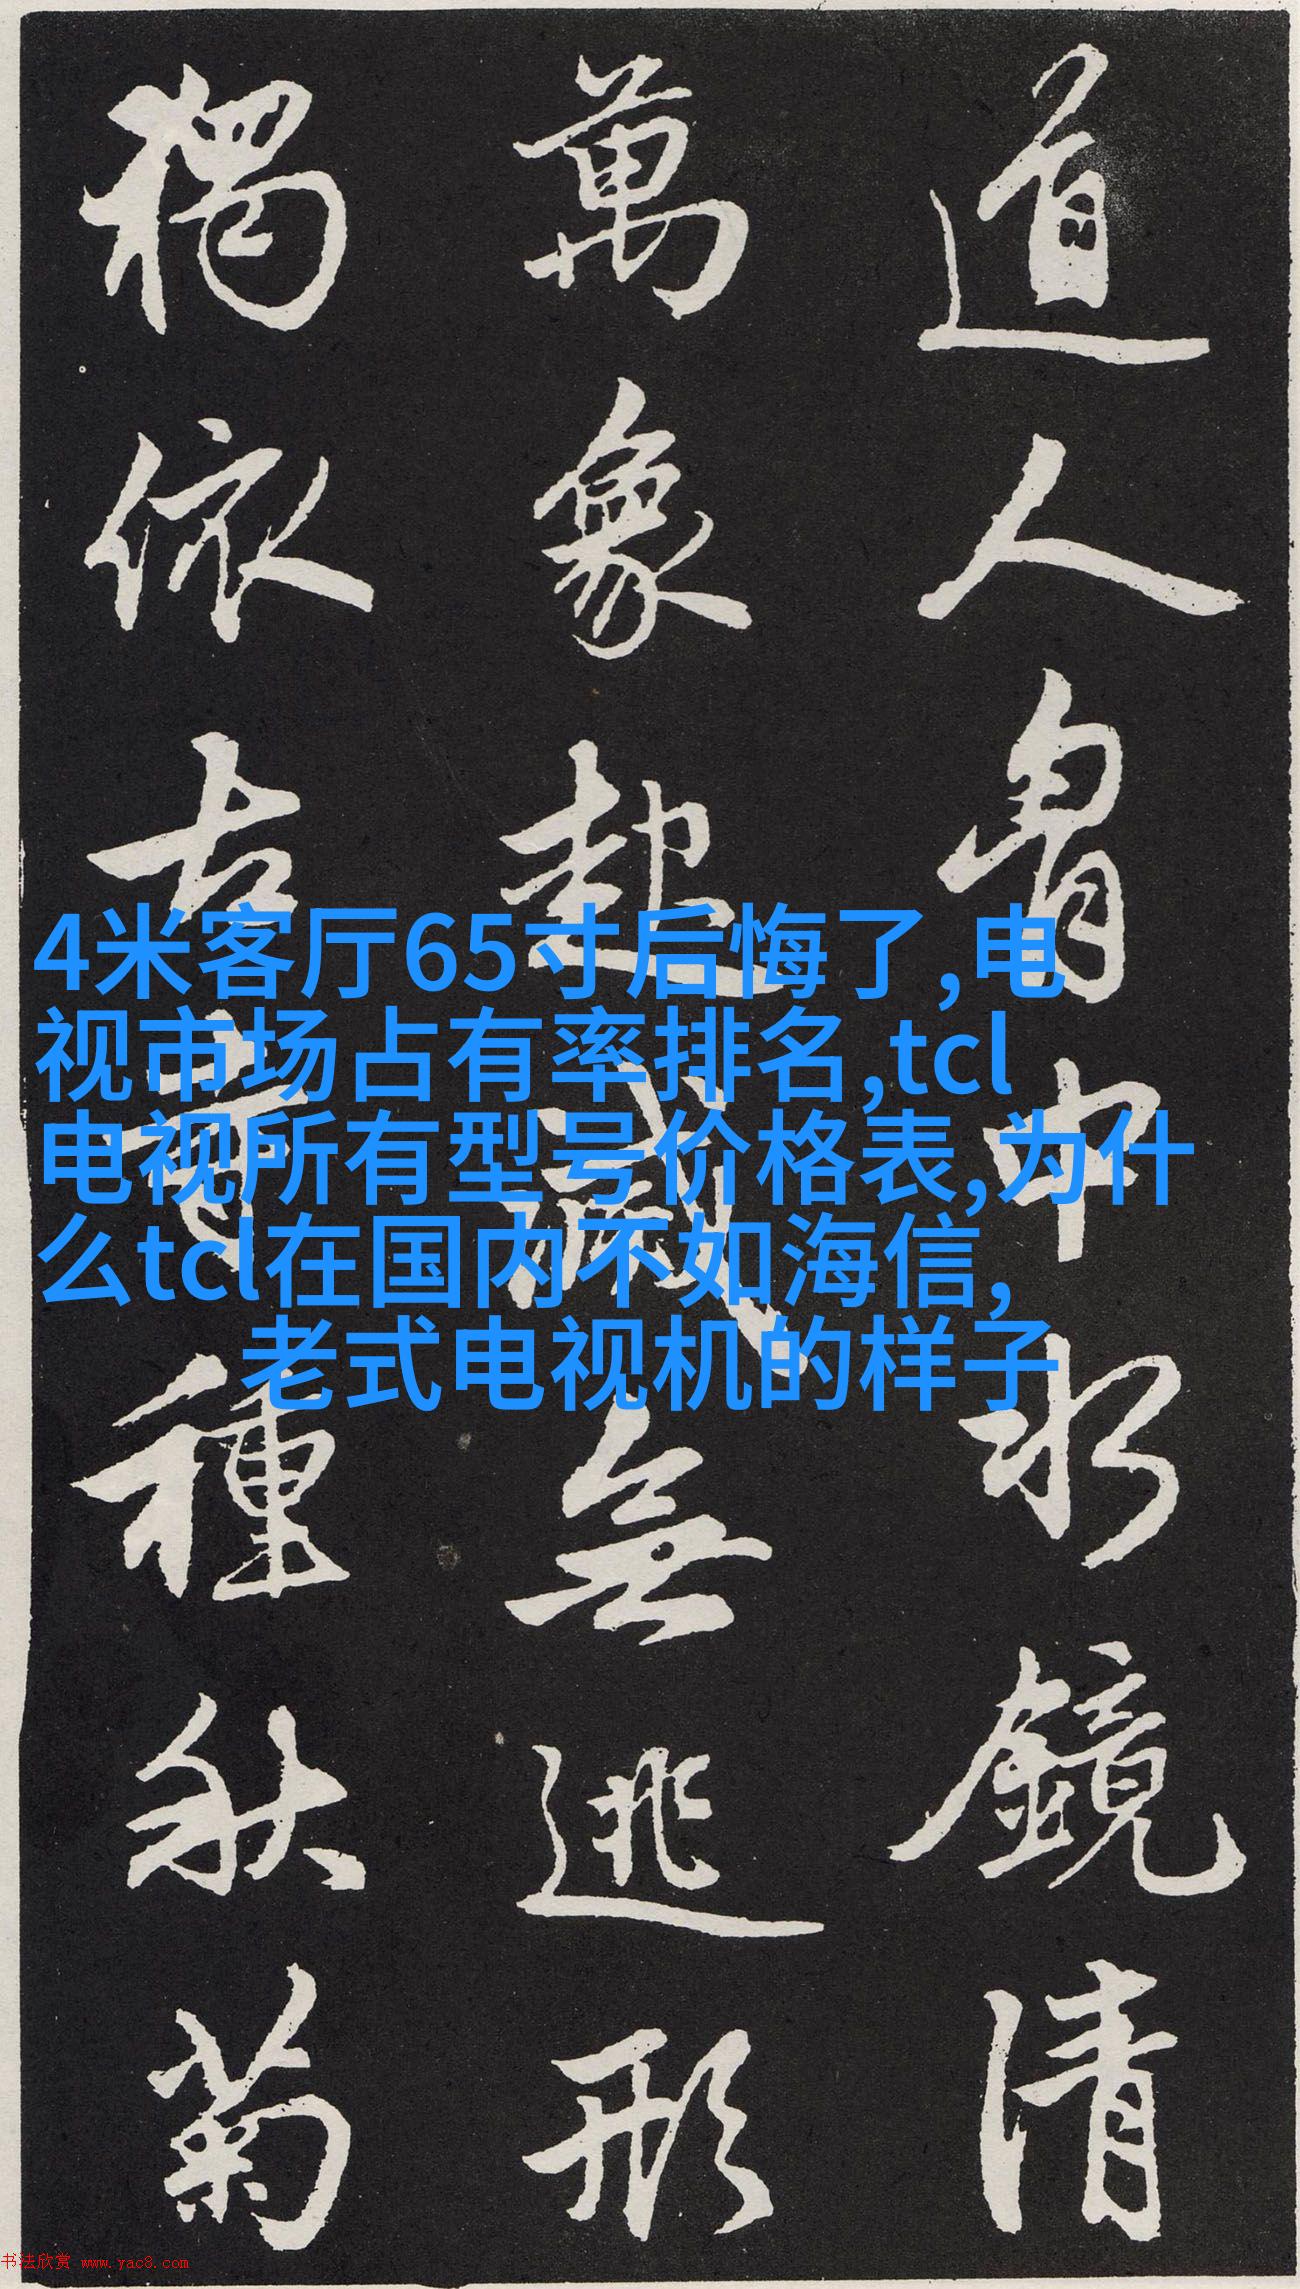 道人胷中水鏡清
萬象起滅無逃形
獨依古寺種秋菊
4米客厅65寸后悔了,电
视市场占有率排名,tcl
电视所有型号价格表,为什
么tcl在国内不如海信,
老式电视机的样子
书法欣赏 www.yac8.com